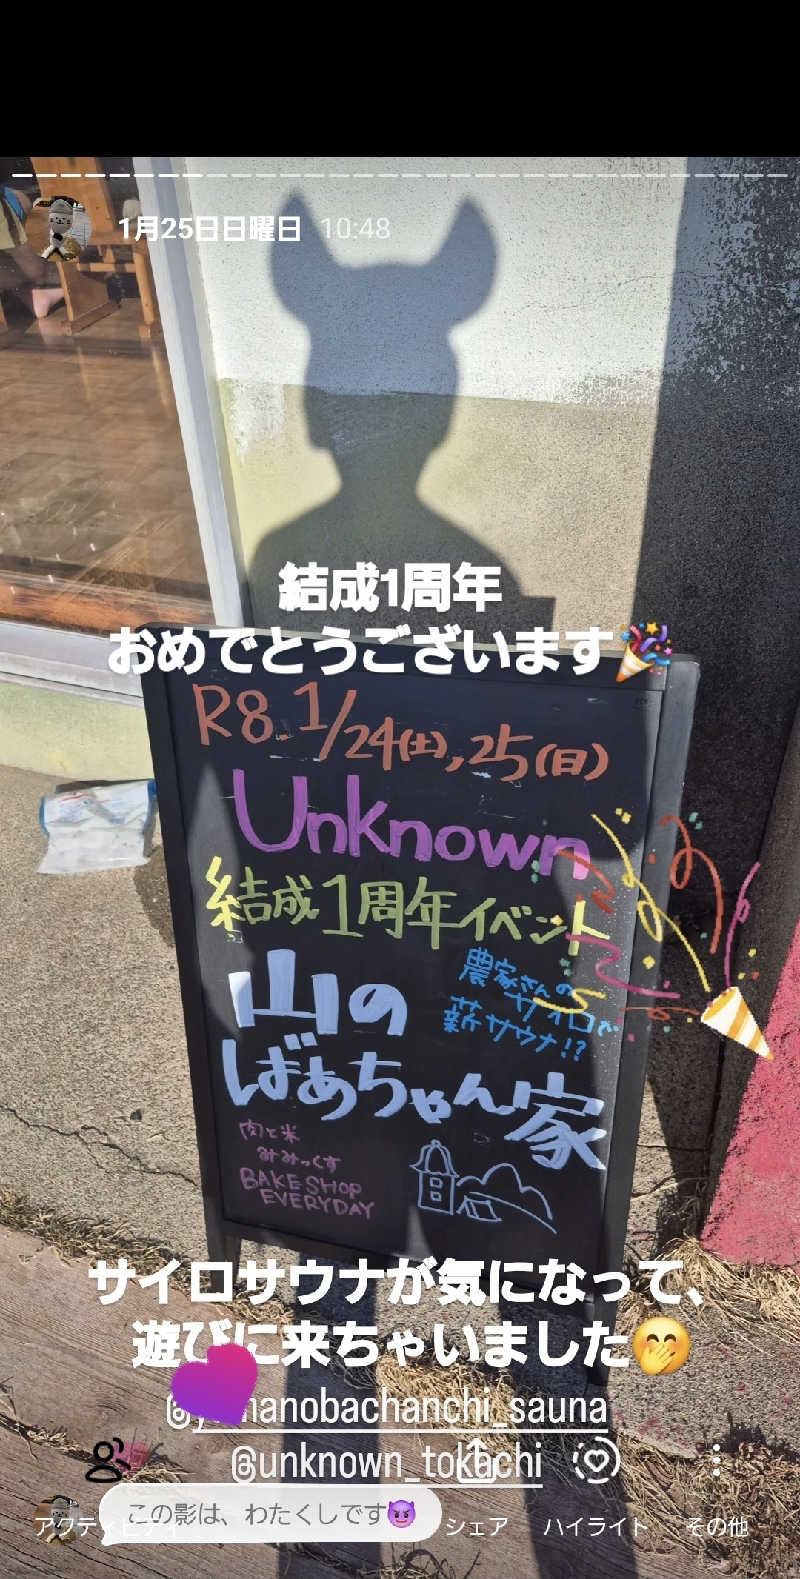 1月25日日曜日 10:48
結成1周年
おめでとうございます🎉
R8. 1/24(土),25(日)
Unknown
結成1周年イベント
農家さんの
サイロで
薪サウナ!?
山の
ばあちゃん家
肉と米
みみっくす
BAKE SHOP
EVERYDAY
サイロサウナが気になって、
遊びに来ちゃいました🤭
@yamanobachanchi_sauna
@unknown_tokachi
この影は、わたくしです😈
アクティビティ
シェア
ハイライト
その他